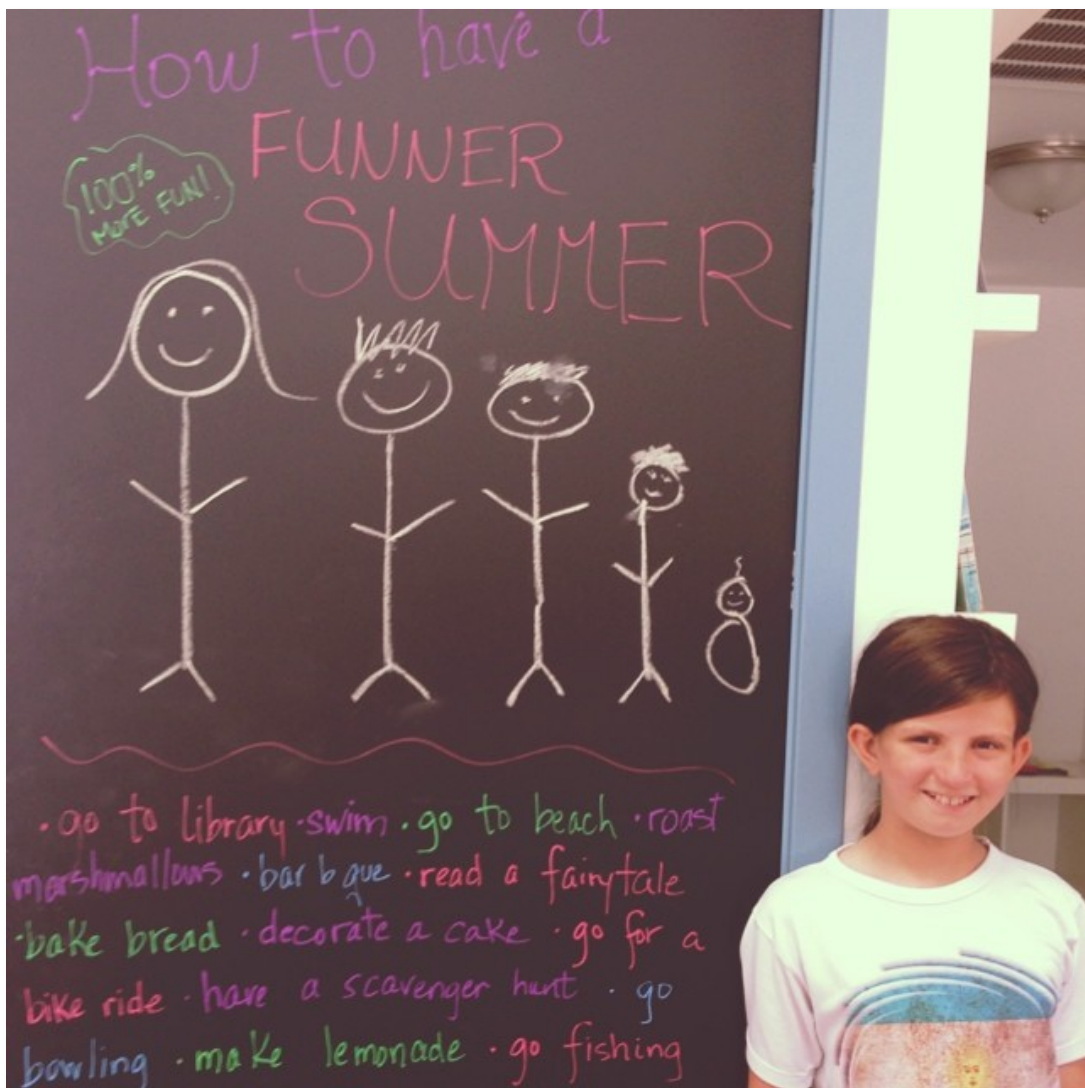 How to have a
FUNNER
100%
MORE FUN!
SUMMER
· go to library · swim · go to beach · roast
marshmallows · bar b que · read a fairytale
· bake bread · decorate a cake · go for a
bike ride · have a scavenger hunt · go
bowling · make lemonade · go fishing